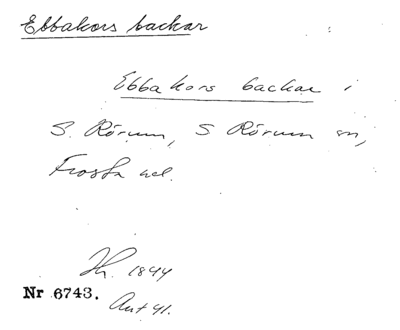 Ebbakors backar
Ebbakors backar i
S. Rörum, S Rörum sn,
Frosta hd.
Th. 1844
Nr 6743.
Ant 41.